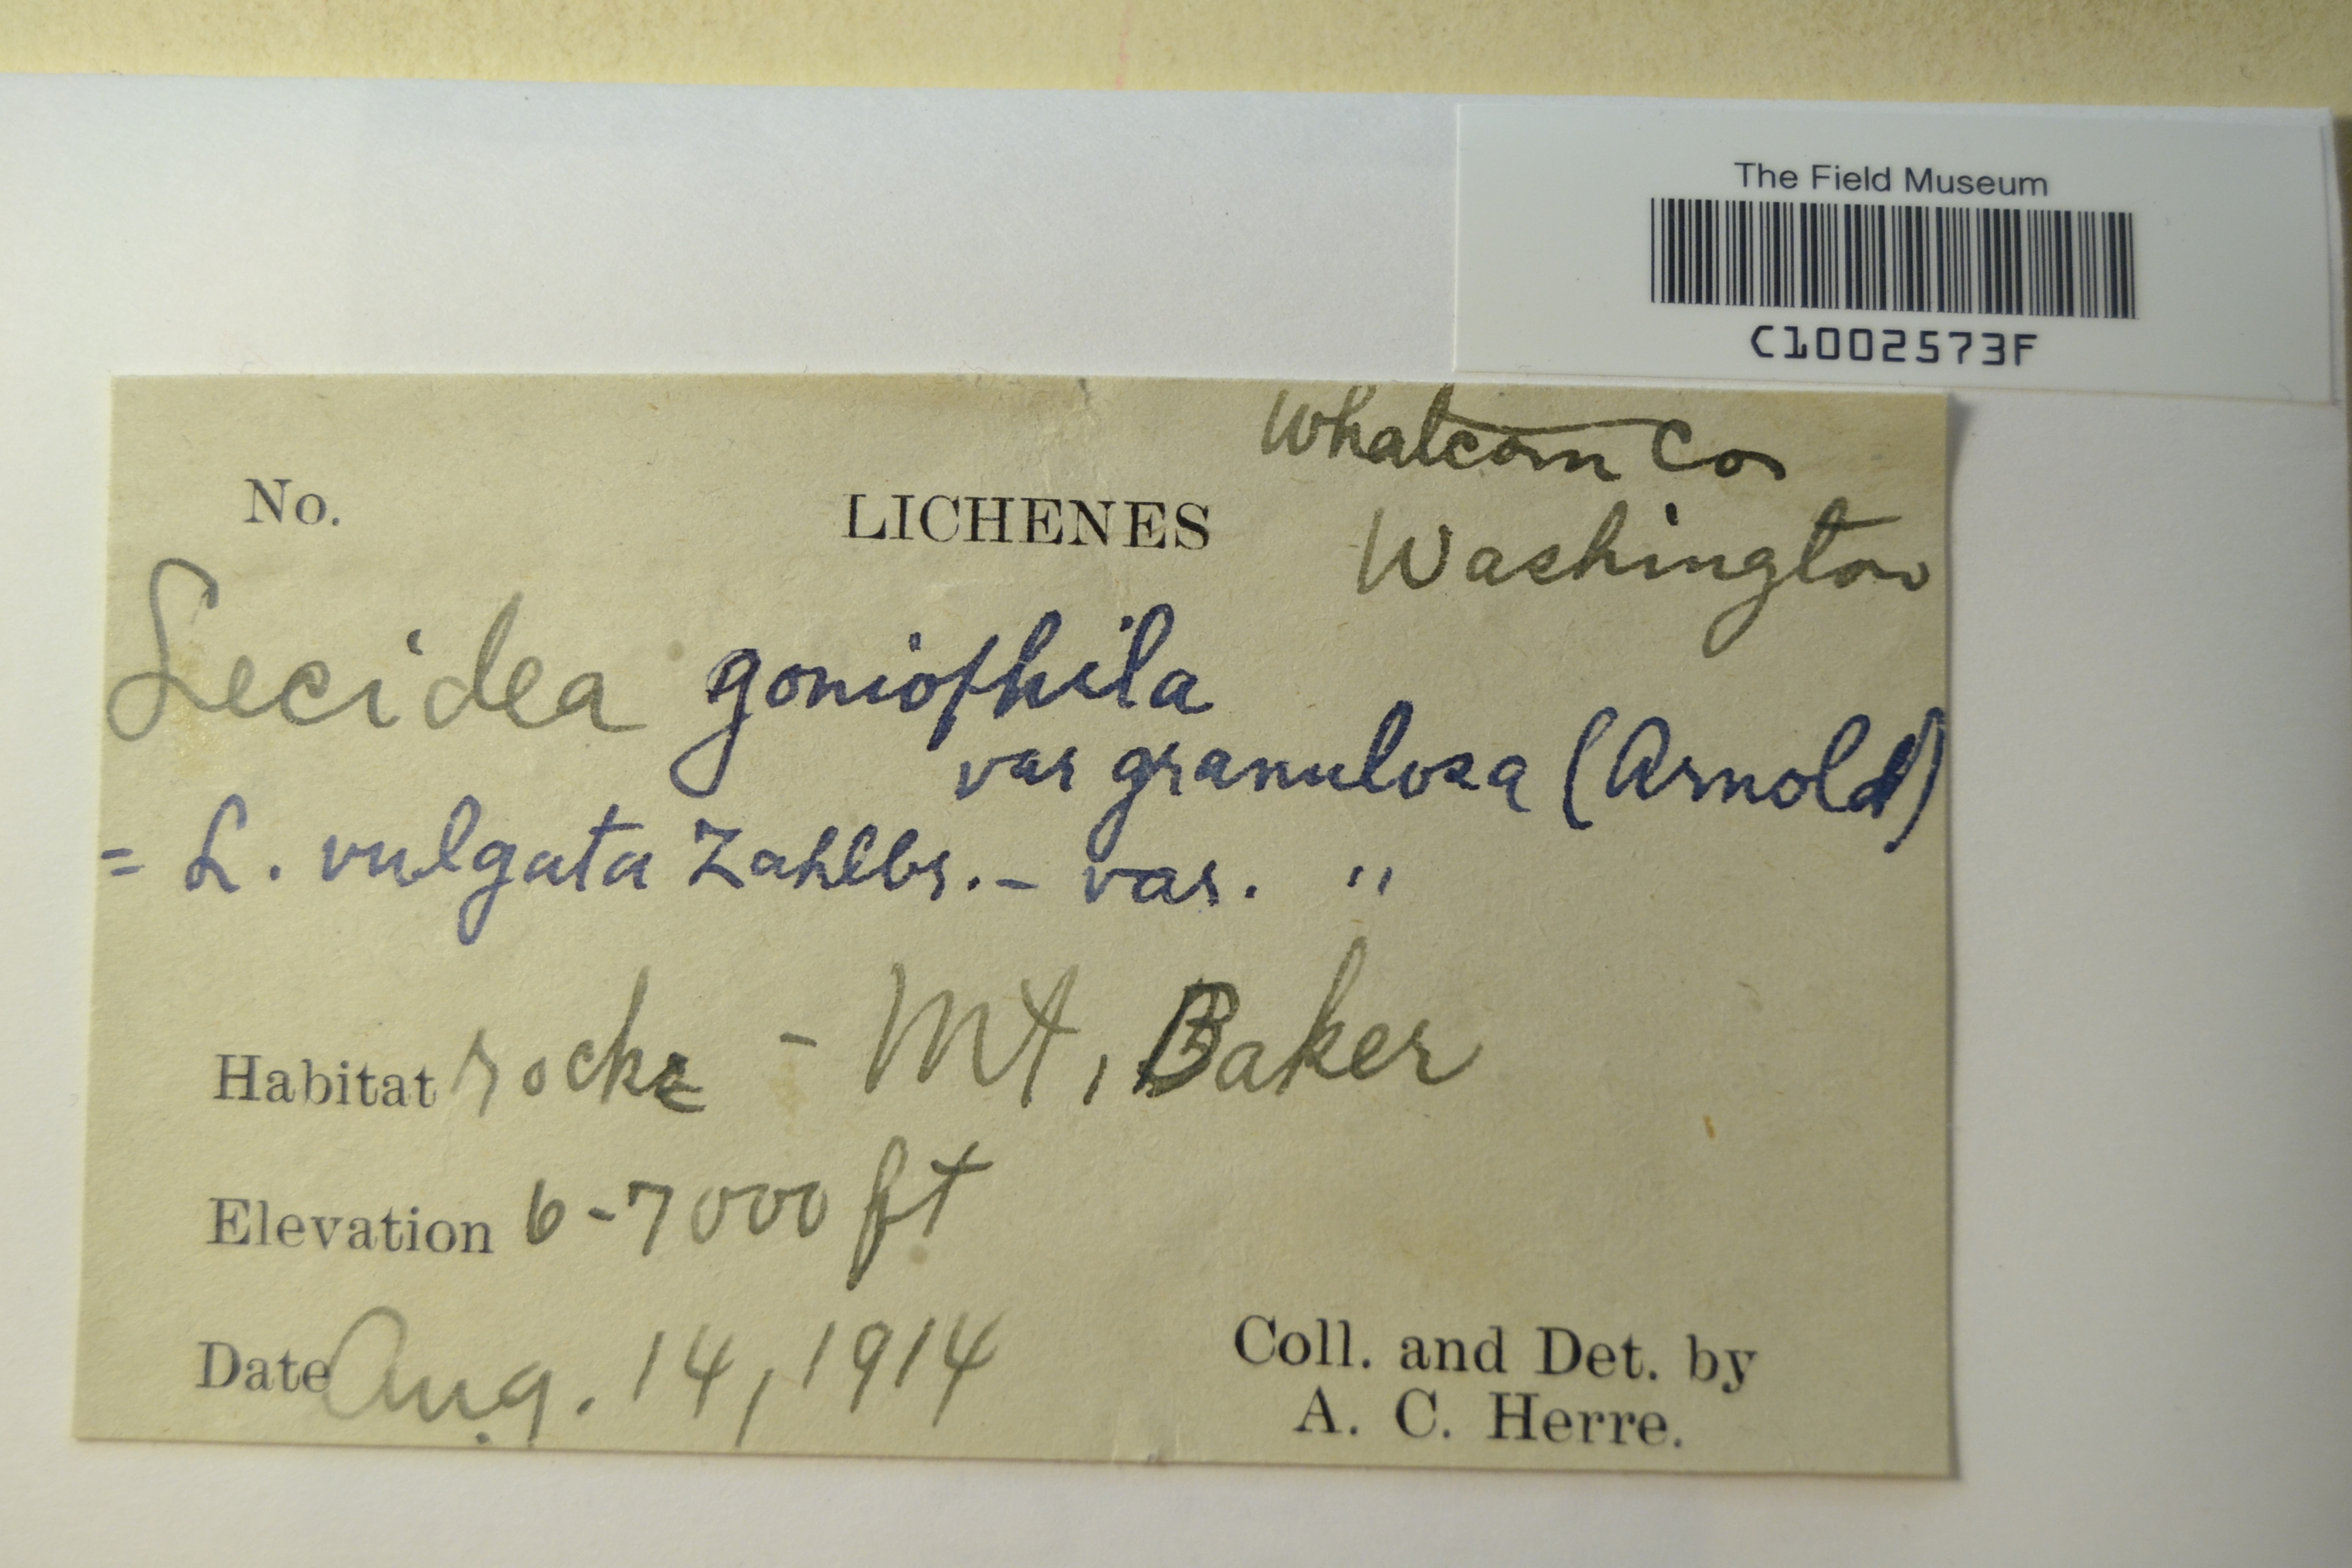 The Field Museum
C1002573F
Whatcom Co
No. LICHENES
Washington
Lecidea goniophila
var granulosa (Arnold)
= L. vulgata Zahlbr. - var. "
Habitat rocks - Mt. Baker
Elevation 6-7000 ft
Date Aug. 14, 1914
Coll. and Det. by
A. C. Herre.